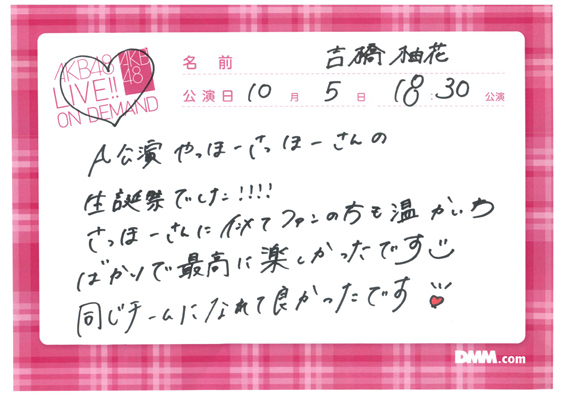 AKB48
LIVE!!
ON DEMAND
AKB
48
名前 吉橋柚花
公演日 10月 5日 18:30公演
A公演 やっほーさっほーさんの
生誕祭でした!!!!
さっほーさんに似てファンの方も温かい方
ばかりで最高に楽しかったです
同じチームになれて良かったです
DMM.com